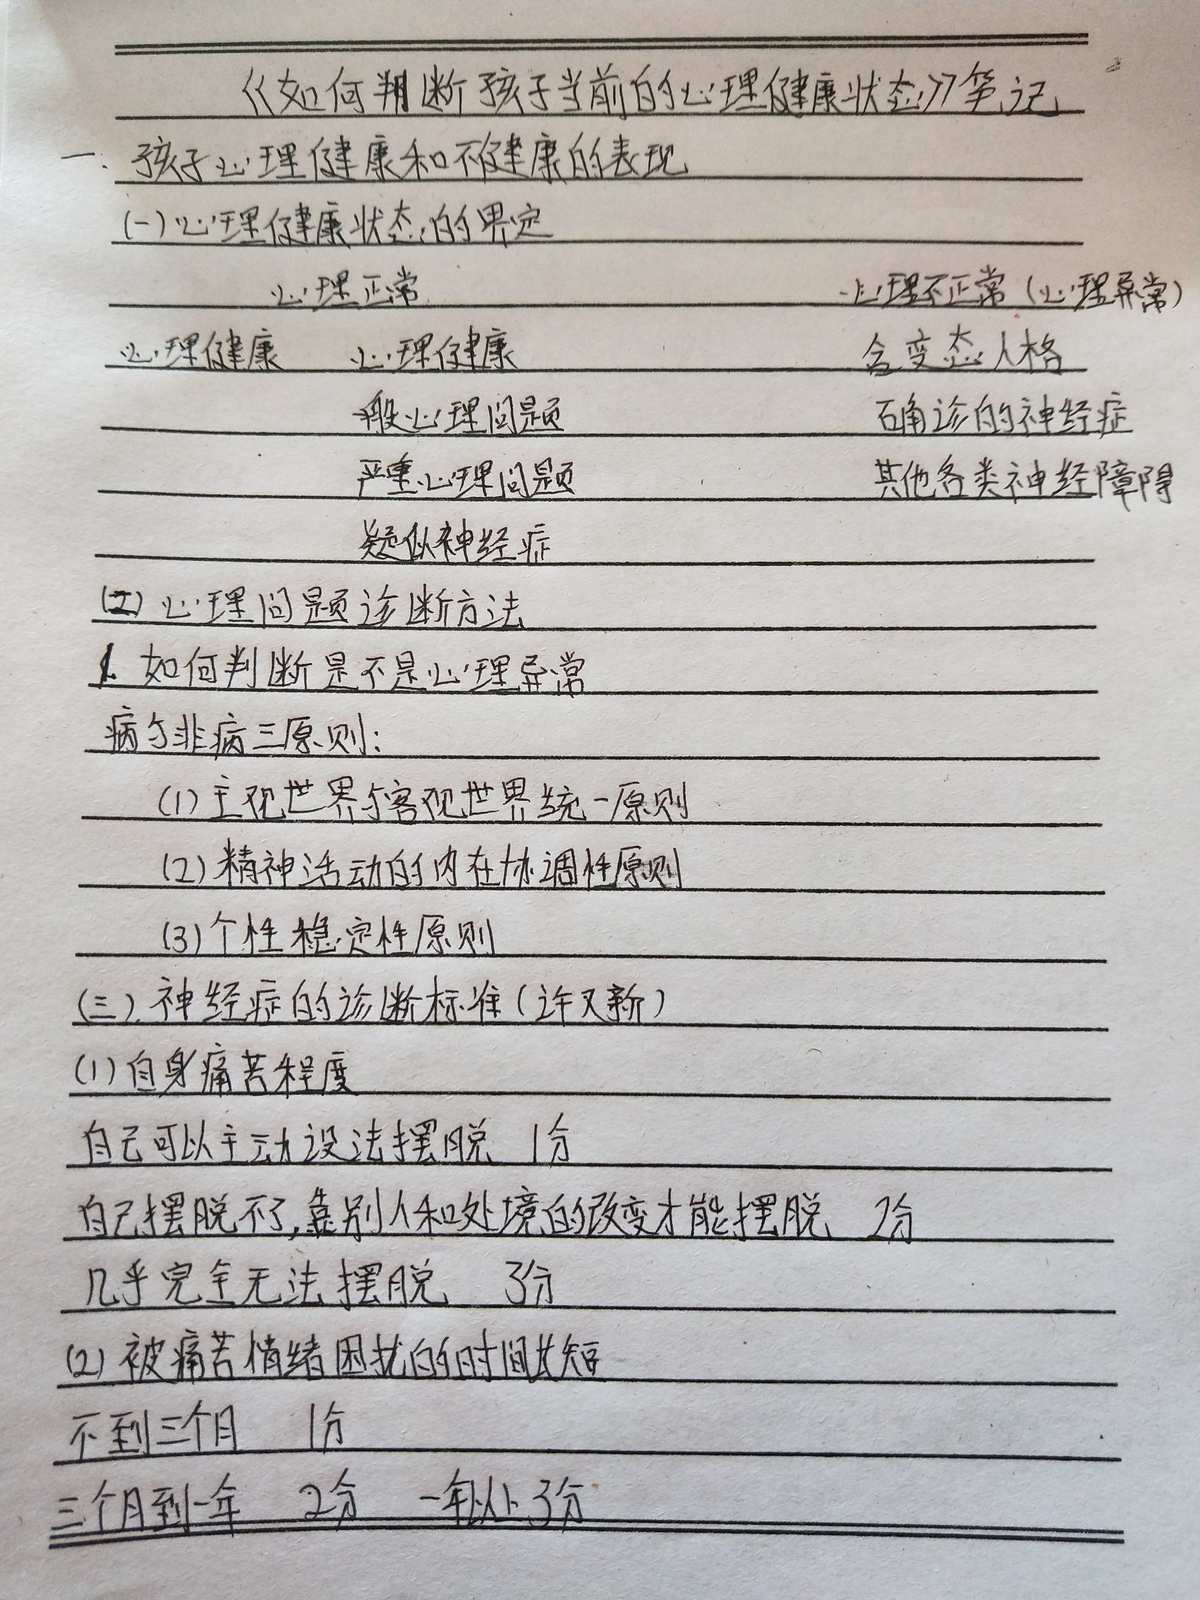 《如何判断孩子当前的心理健康状态》笔记
一、孩子心理健康和不健康的表现
(一)心理健康状态的界定
心理正常 心理不正常(心理异常)
心理健康 心理健康 含变态人格
一般心理问题 确诊的神经症
严重心理问题 其他各类神经障碍
疑似神经症
(二)心理问题诊断方法
1. 如何判断是不是心理异常
病与非病三原则:
(1)主观世界与客观世界统一原则
(2)精神活动的内在协调性原则
(3)个性稳定性原则
(三)神经症的诊断标准(许又新)
(1)自身痛苦程度
自己可以主动设法摆脱 1分
自己摆脱不了,靠别人和处境的改变才能摆脱 2分
几乎完全无法摆脱 3分
(2)被痛苦情绪困扰的时间长短
不到三个月 1分
三个月到一年 2分 一年以上 3分